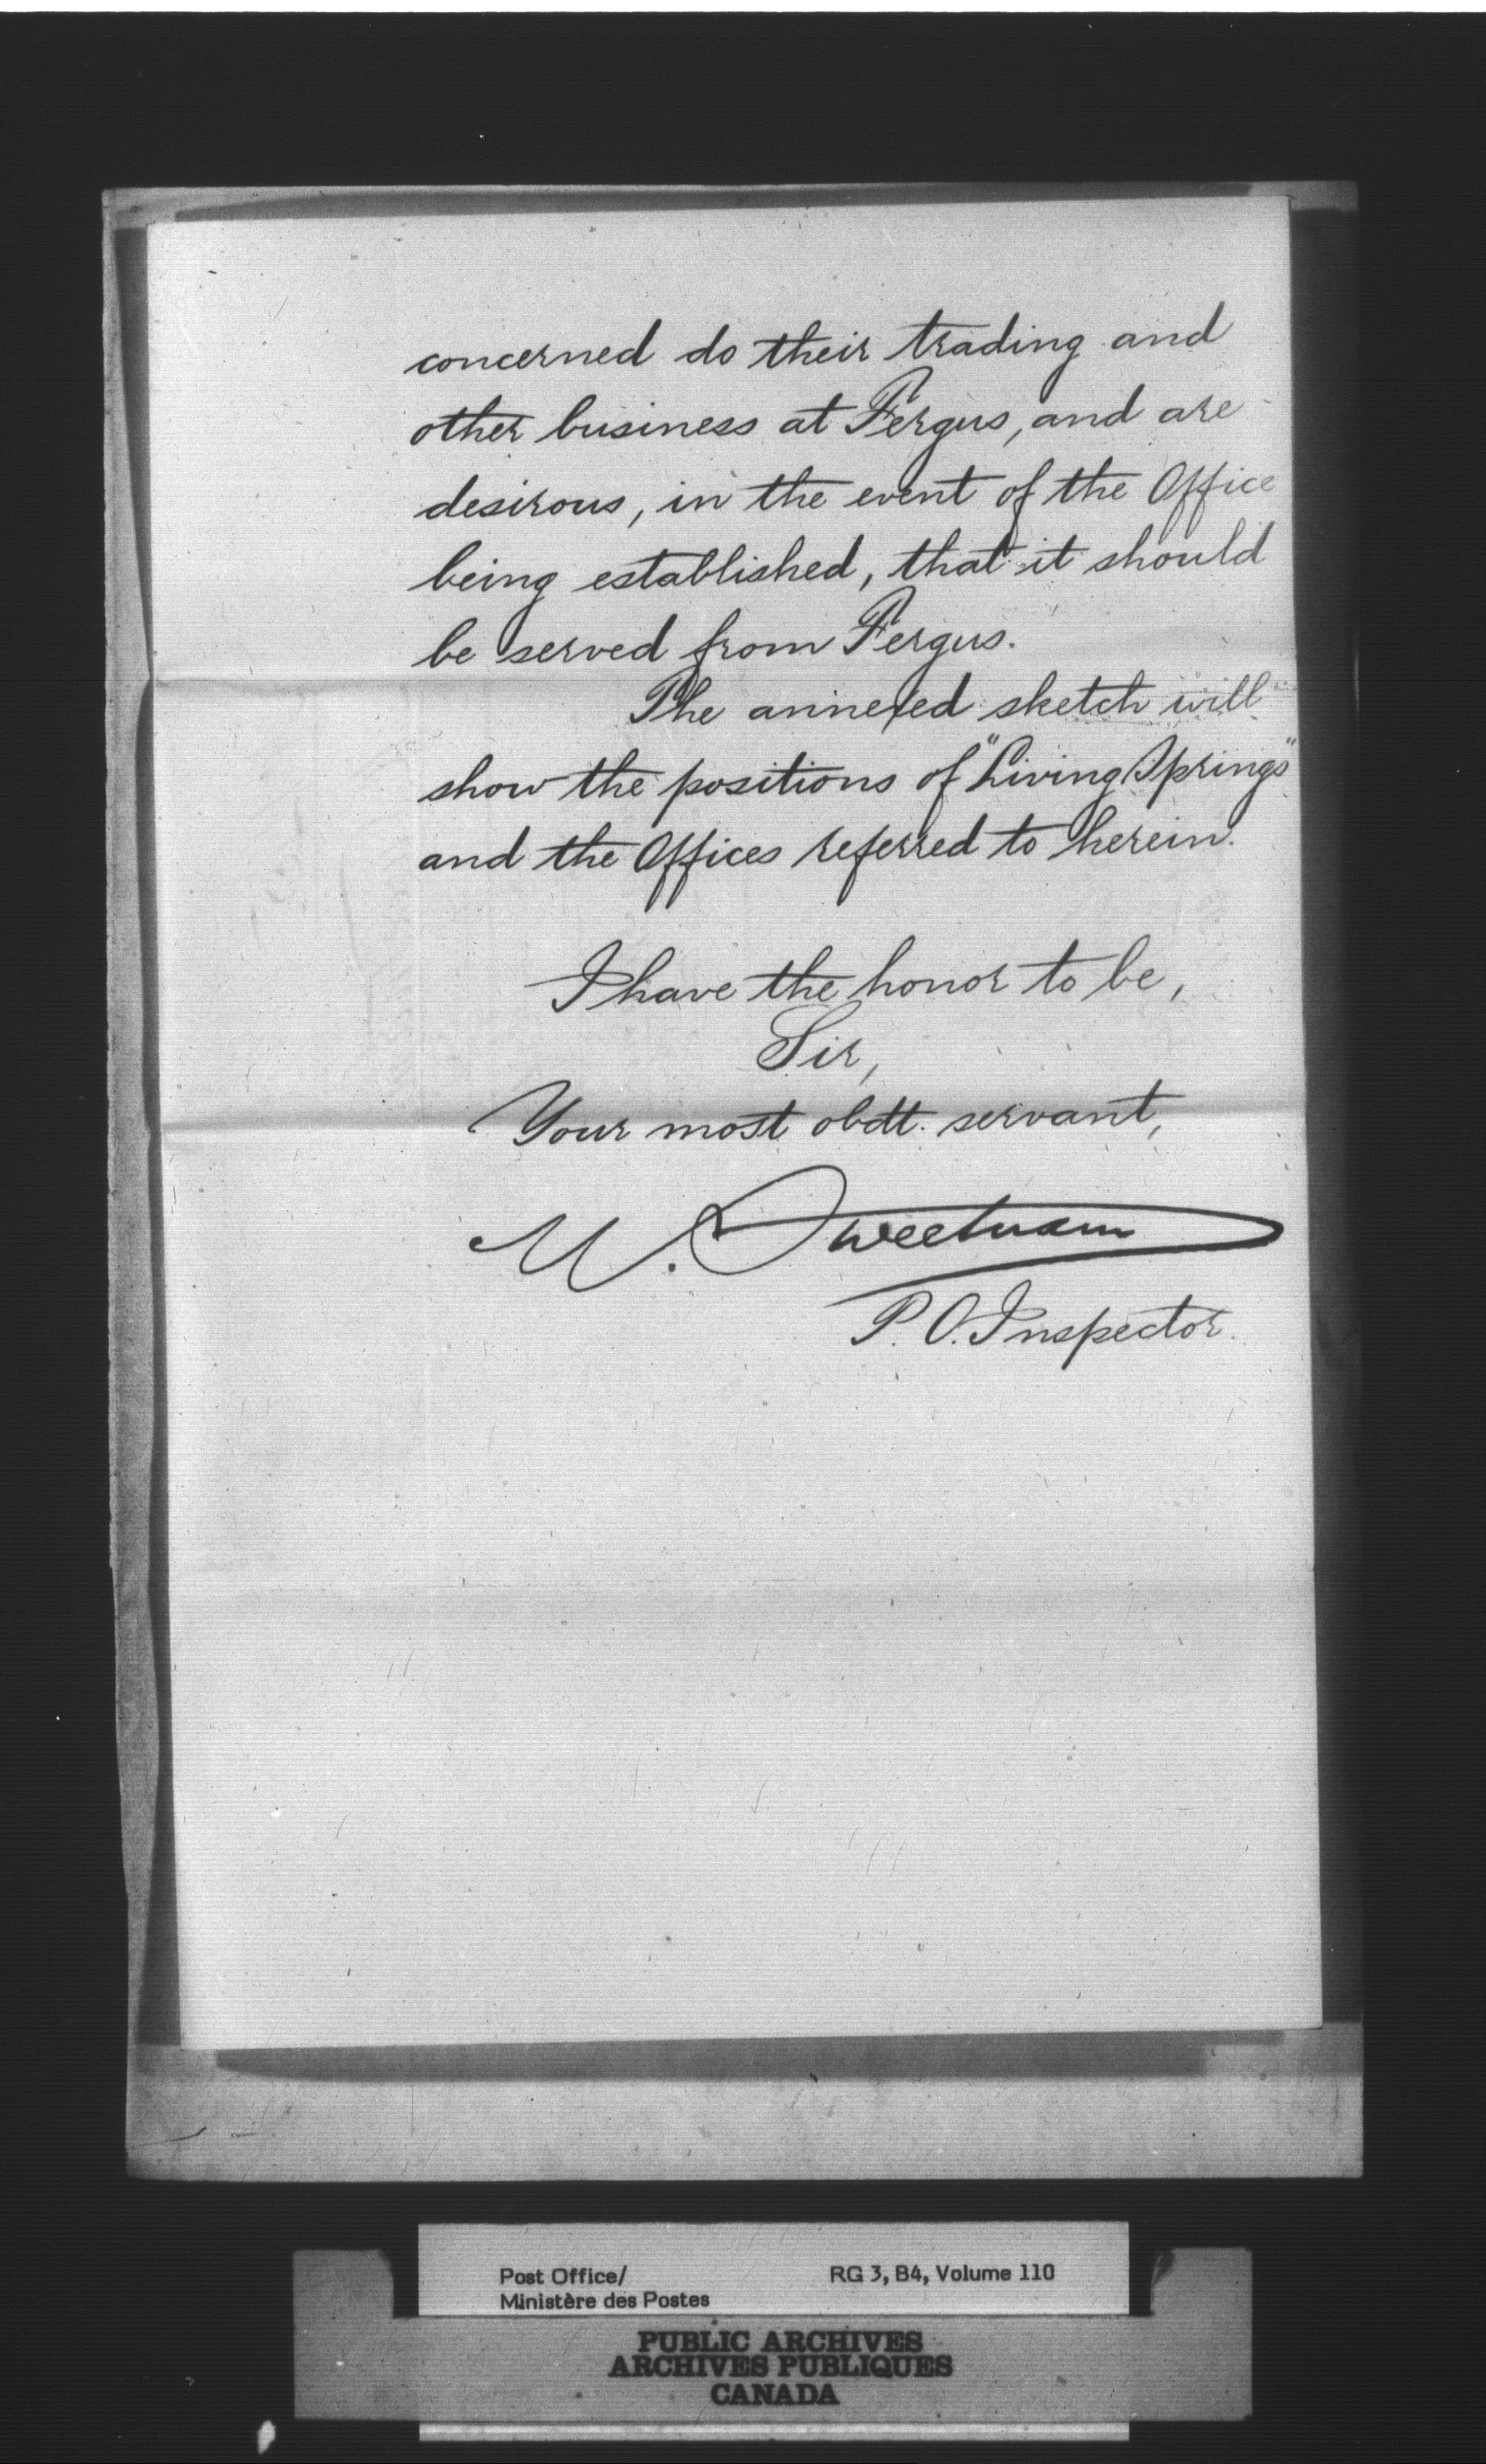 concerned do their trading and
other business at Fergus, and are
desirous, in the event of the Office
being established, that it should
be served from Fergus.
The annexed sketch will
show the positions of "Living Springs"
and the Offices referred to herein.
I have the honor to be,
Sir,
Your most obdt. servant,
M. Sweetnam
P. O. Inspector.
Post Office/
Ministère des Postes
RG 3, B4, Volume 110
PUBLIC ARCHIVES
ARCHIVES PUBLIQUES
CANADA